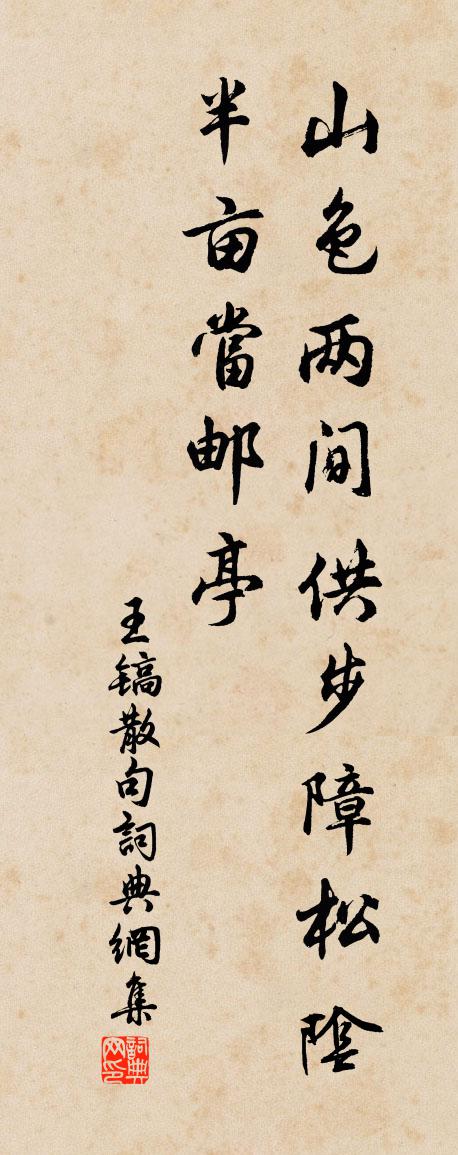 山色两间供步障松陰
半亩當邮亭
王镐散句詞典網集
詞典网印